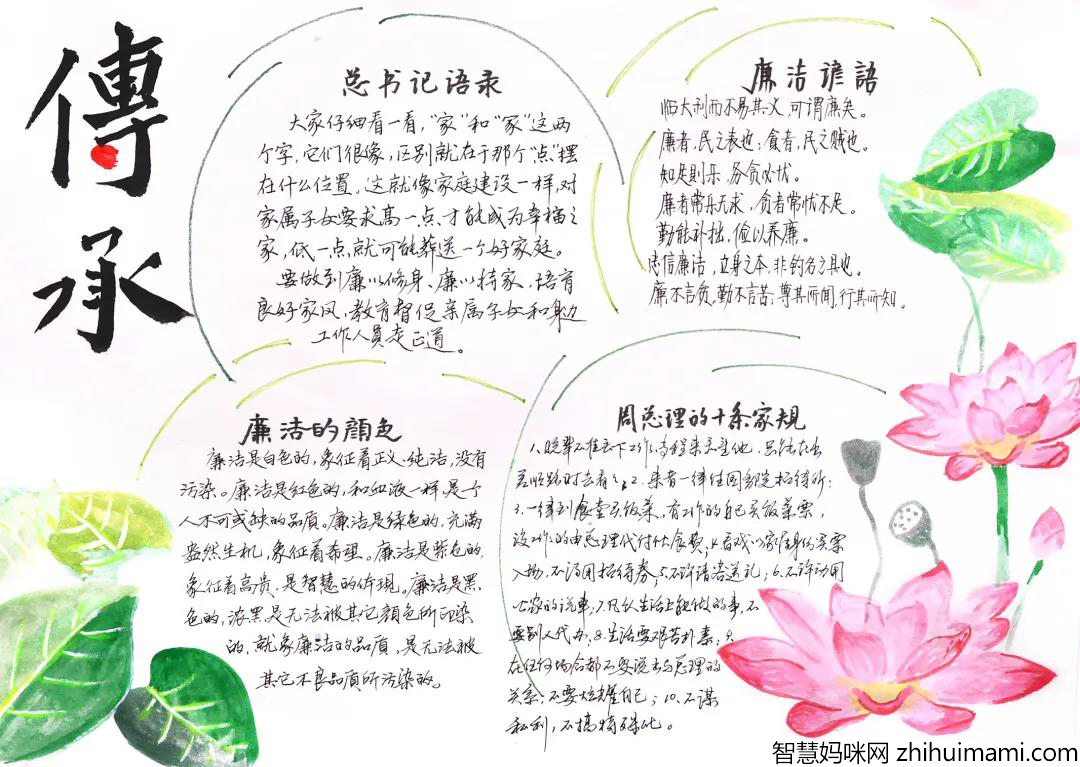 傳承
总书记语录
大家仔细看一看，“家”和“冢”这两
个字，它们很像，区别就在于那个“点”摆
在什么位置。这就像家庭建设一样，对
家属子女要求高一点，才能成为幸福之
家，低一点，就可能葬送一个好家庭。
要做到廉以修身、廉以持家，培育
良好家风，教育督促亲属子女和身边
工作人員走正道。
廉洁谚語
临大利而不易其义，可谓廉矣。
廉者，民之表也；貪者，民之贼也。
知足则乐，务贪必忧。
廉者常乐无求，贪者常忧不足。
勤能补拙，俭以养廉。
忠信廉洁，立身之本，非钓名之具也。
廉不言贫，勤不言苦；尊其所闻，行其所知。
廉洁的顔色
廉洁是白色的，象征着正义、纯洁，没有
污染。廉洁是红色的，和血液一样，是一个
人不可或缺的品质。廉洁是绿色的，充满
盎然生机，象征着希望。廉洁是紫色的，
象征着高贵，是智慧的体现。廉洁是黑
色的，浓黑是无法被其它顔色所印染
的，就象廉洁的品质，是无法被
其它不良品质所污染的。
周总理的十条家规
1、晚辈不准丢下工作专程来看望他，只能在出
差顺路时去看；2、来者一律住国務院招待所；
3、一律到食堂买饭菜，有工作的自己买饭菜票，
没工作的由总理代付伙食费；4、看戏以家属身份买票
入场，不得用招待券；5、不许请客送礼；6、不许动用
公家的汽車；7、凡个人生活上能做的事，不
要别人代办；8、生活要艰苦朴素；9、
在任何场合都不要说出与总理的
关系，不要炫耀自己；10、不谋
私利，不搞特殊化。
智慧妈咪网 zhihuimami.com